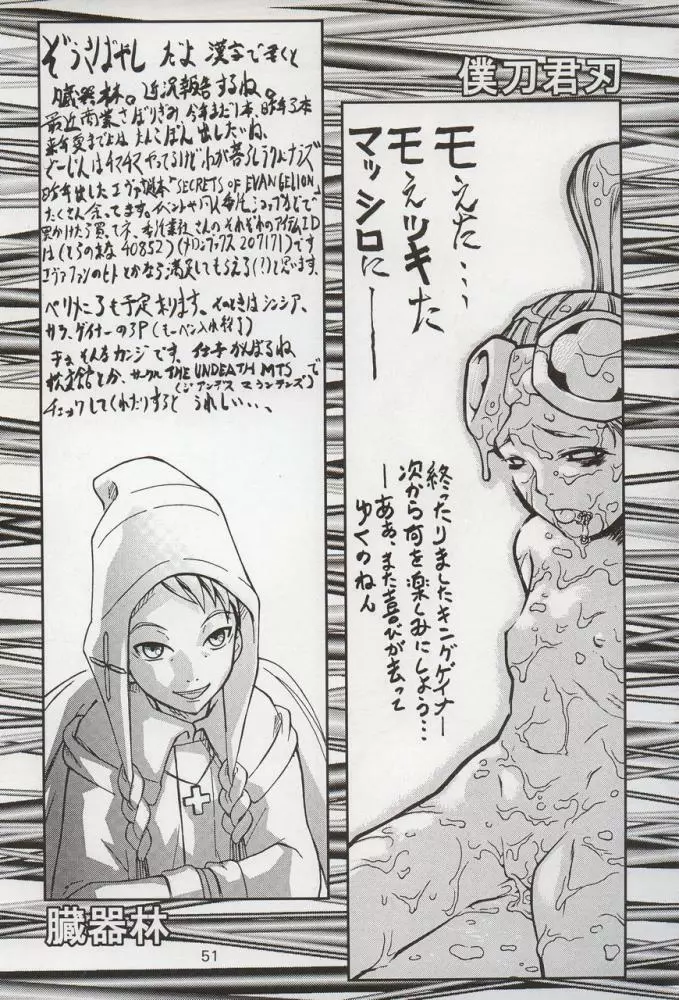 僕刀君刃
モえた…
モえツキた
マッシロにー
終ったりましたキングゲイナー
次から何を楽しみにしよう…
ーああ、また喜びが去って
ゆくのねん
ぞうきばやし だよ 漢字で書くと
臓器林。近況報告するね。
最近商業さぼりぎみ、今年まだ1本、昨年3本
来年夏までには たんこぼん 出したいね、
どーじんはチマチマやってるけどわが暮らしラクになんズ
昨年出したエヴァ本「SECRETS OF EVANGELION」
たくさん余ってます。イベントや同人
見かけたら買ってネ、
は(とらのあな 40852)(メロンブックス 207171)です
エヴァファンのヒトとかなら満足してもらえる(?)と思います。
ベリメころも予定あります。そのときはシンシア、
サラ、ゲイナーの3P
チョ そんなカンジです。仕事がんばるね
とか、サークル THE UNDEATH MTS で
(ジ アンデス マウンテンズ)
チェックしてくれたりすると うれしい…、
臓器林
51